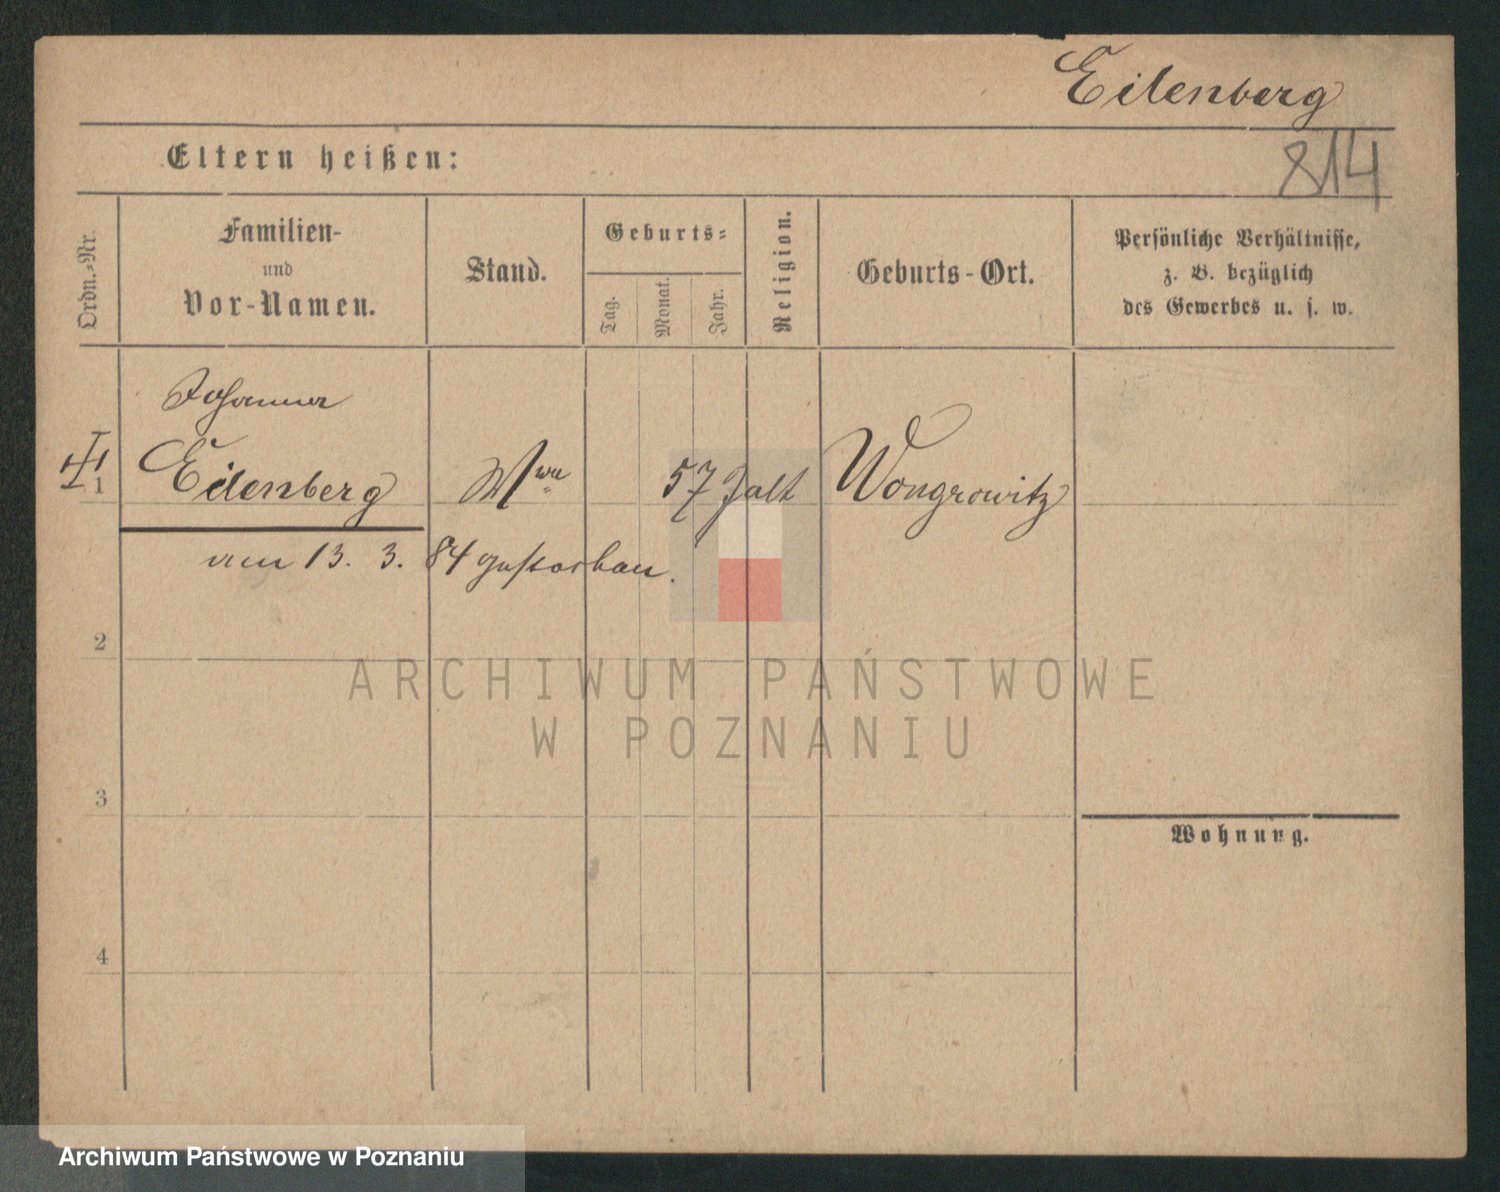 Eilenberg
Eltern heißen:
814
Ordn.-Nr.
Familien-
und
Vor-Namen.
Stand.
Geburts-
Tag.
Monat.
Jahr.
Religion.
Geburts-Ort.
Persönliche Verhältnisse,
z. B. bezüglich
des Gewerbes u. s. w.
Johanna
1
Eilenberg
Wwe
57 J alt
Wongrowitz
am 13. 3. 84 gestorben.
2
3
4
Wohnung.
ARCHIWUM PAŃSTWOWE
W POZNANIU
Archiwum Państwowe w Poznaniu